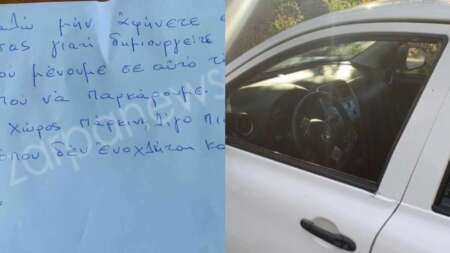 μήν αφήνετε
σας γιατί δημιουργείτε
μένουμε σε αυτό τ
που να παρκάρουμε.
χώρος πάρκιν, λίγο πι
δέν ενοχλήται κα
zarpanews